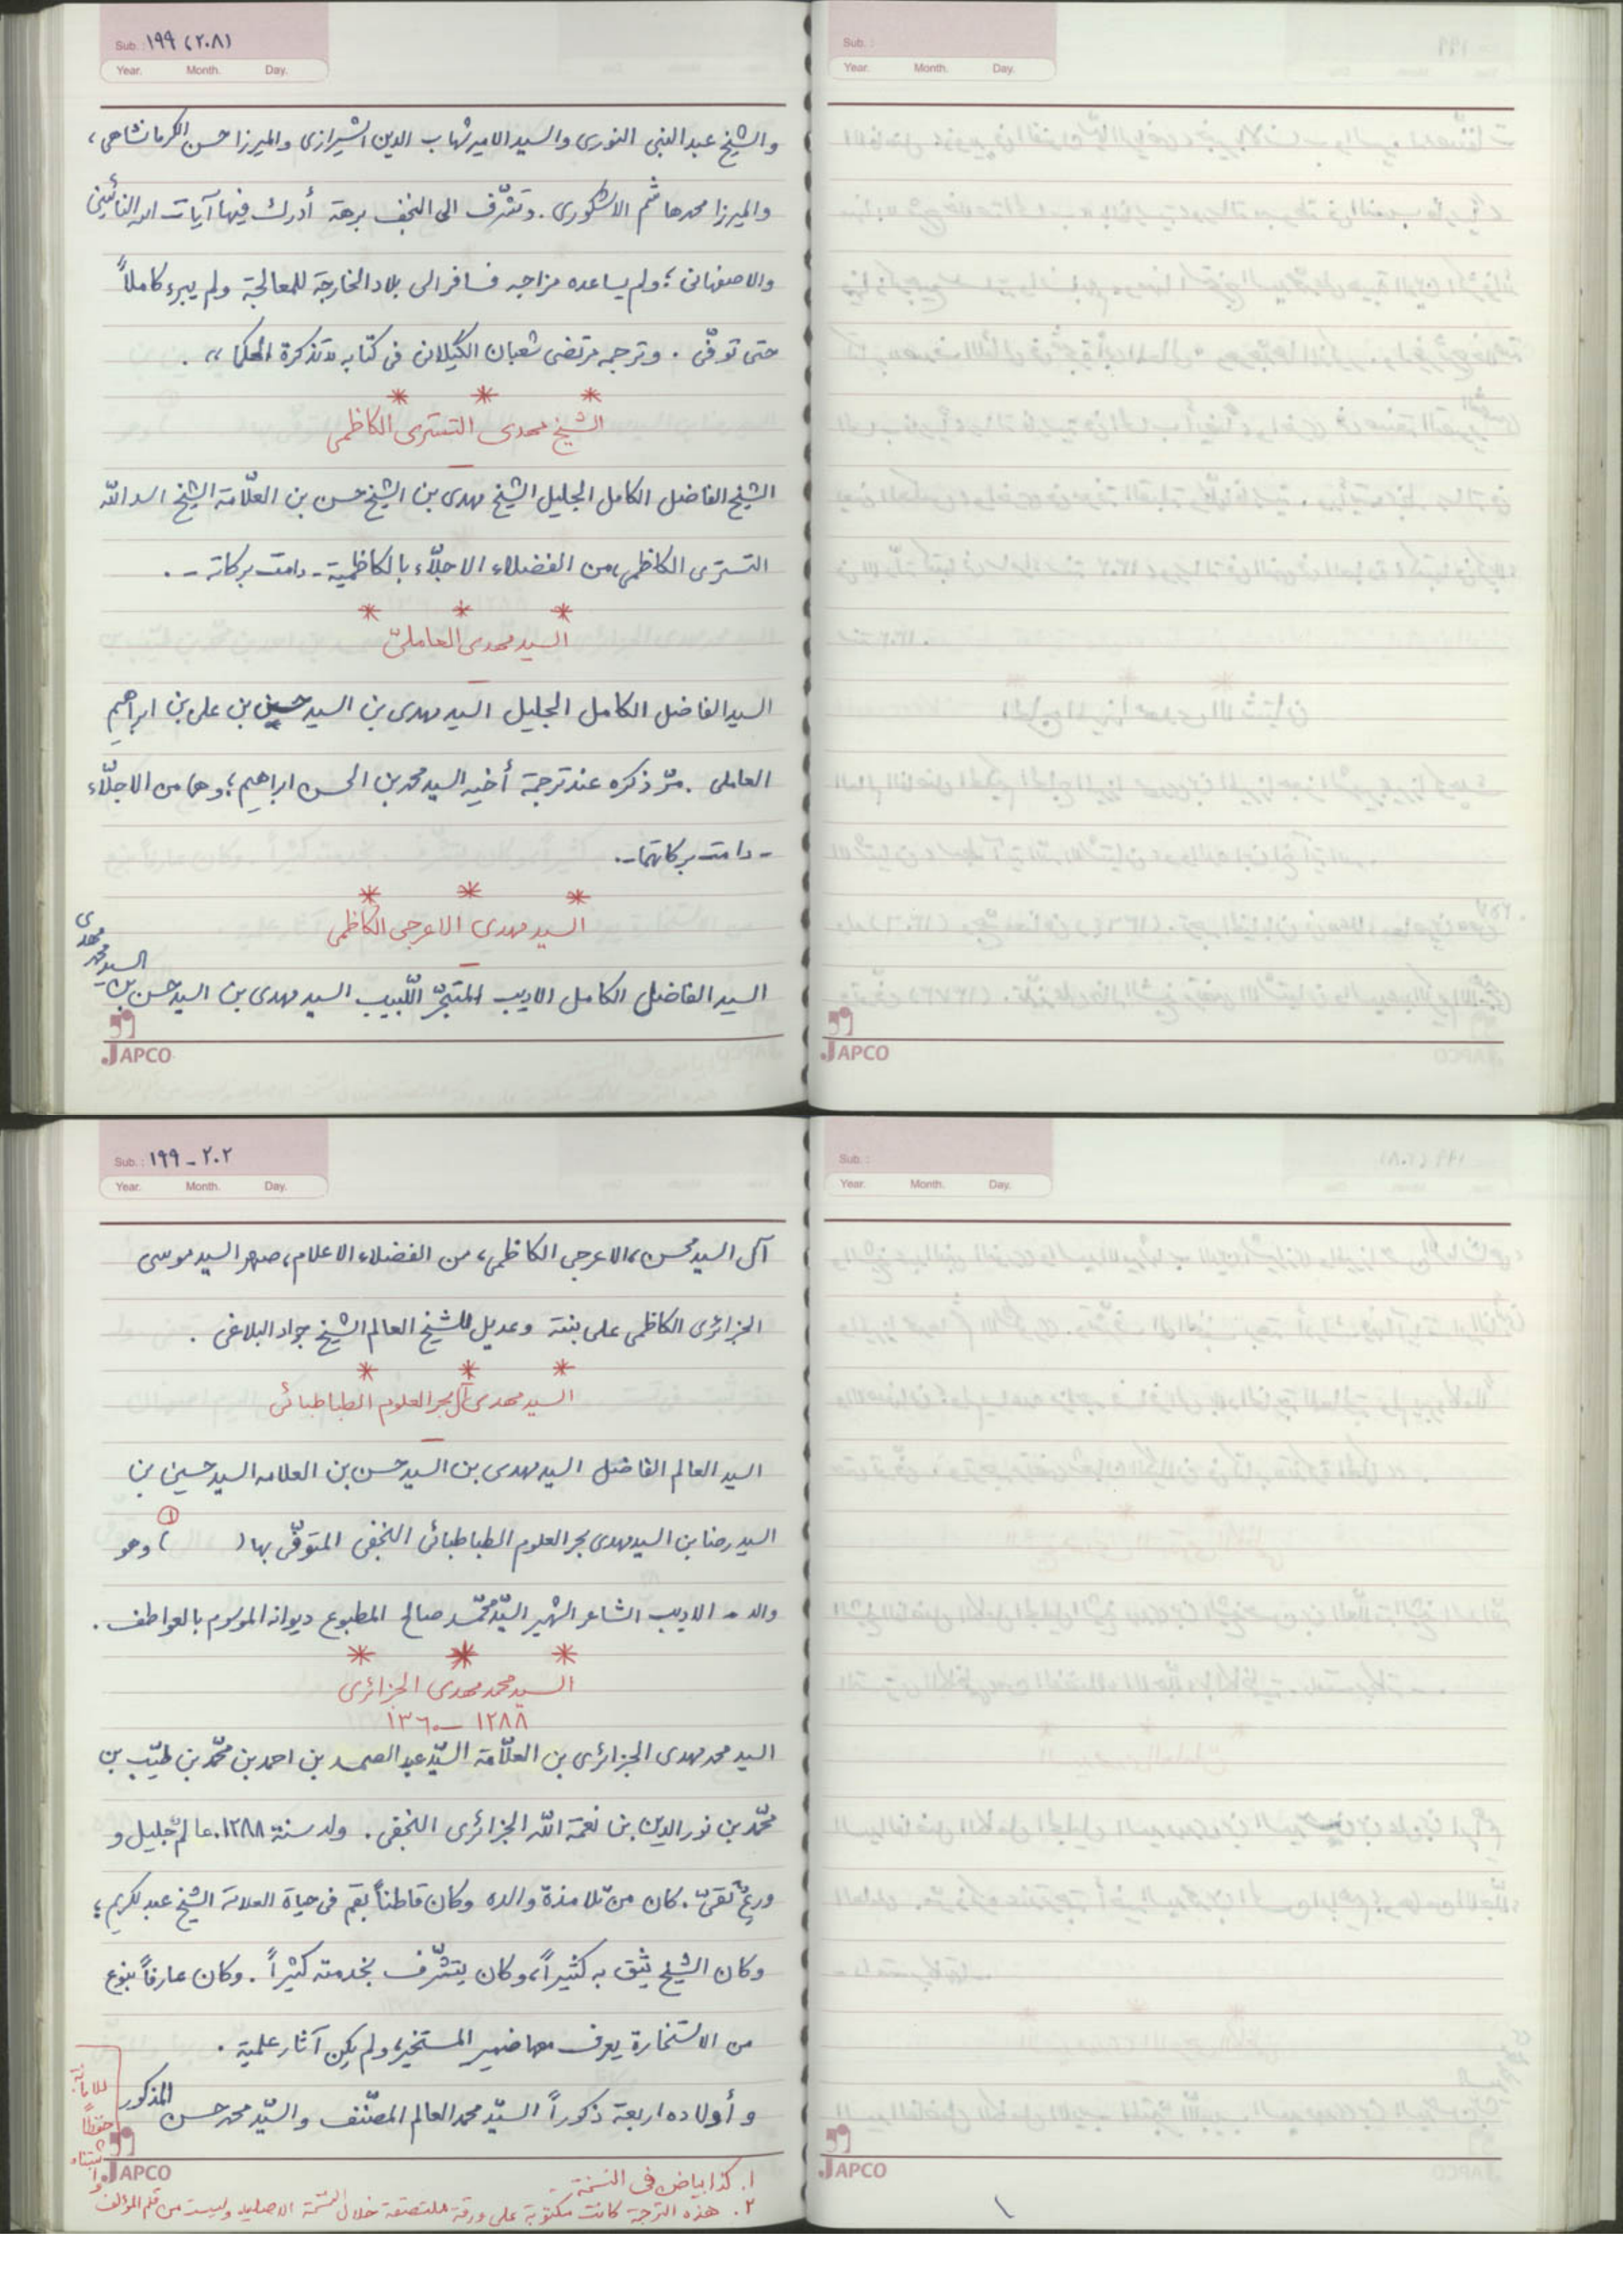 Sub. : ١٩٩ (٢٠٨)
Year. Month. Day.
والشيخ عبد النبى النورى والسيد الامير شهاب الدين الشيرازى والميرزا حسن الكرمانشاهى،
والميرزا محمد هاشم الاشكورى. وتشّرف الى النجف برهة أدرك فيها آيات الله النائينى
والاصفهانى؛ ولم يساعده مزاجه فسافر الى بلاد الخارجة للمعالجة ولم يبرء كاملاً
حتى توفّى . وترجمه مرتضى شعبان الگيلانى فى كتابه «تذكرة الحكما» .
* * *
الشيخ مهدى التسترى الكاظمى
الشيخ الفاضل الكامل الجليل الشيخ مهدى بن الشيخ حسن بن العلّامة الشيخ اسد اللّه
التسترى الكاظمى، من الفضلاء الاجلّاء بالكاظمية ـ دامت بركاته ـ .
* * *
السيد مهدى العاملىّ
السيد الفاضل الكامل الجليل السيد مهدى بن السيد حسين بن على بن ابراهيم
العاملى . مرّ ذكره عند ترجمة أخيه السيد محمد بن الحسن ابراهيم؛ وهما من الاجلّاء
ـ دامت بركاتهما ـ.
* * *
السيد مهدى الاعرجى الكاظمى
السيد الفاضل الكامل الاديب المتبحّر اللّبيب السيد مهدى بن السيد حسن بن السيد محمد مهدى
JAPCO
Sub. :
Year. Month. Day.
JAPCO
Sub. : ١٩٩ - ٢٠٢
Year. Month. Day.
آل السيد محسن، الاعرجى الكاظمى، من الفضلاء الاعلام، صهر السيد موسى
الجزائرى الكاظمى على بنته وعديل للشيخ العالم الشيخ جواد البلاغى .
* * *
السيد مهدى آل بحر العلوم الطباطبائى
السيد العالم الفاضل السيد مهدى بن السيد حسن بن العلامه السيد حسين بن
السيد رضا بن السيد مهدى بحر العلوم الطباطبائى النجفى المتوفّى بها ( ) (١) وهو
والد ـ الاديب الشاعر الشهير السيّد محمّد صالح المطبوع ديوانه الموسوم بالعواطف .
* * *
السيد محمد مهدى الجزائرى
١٢٨٨ ــ ١٣٦٠
السيد محمد مهدى الجزائرى بن العلّامة السيّد عبد الصمد بن احمد بن محمّد بن طيّب بن
محمّد بن نور الدين بن نعمة اللّه الجزائرى النجفى . ولد سنة ١٢٨٨. عالمٌ جليل و
ورعٌ تقىّ . كان من تلامذة والده وكان قاطناً بقم فى حياة العلامة الشيخ عبد الكريم؛
وكان الشيخ يثق به كثيراً، وكان يتشّرف بخدمته كثيراً . وكان عارفاً بنوع
من الاستخارة يعرف بها ضمير المستخير، ولم يكن آثار علمية .
و أولاده اربعة ذكوراً السيّد محمد العالم المصنّف والسيّد محمد حسن المذكور
JAPCO
١. كذا بياض فى النسخة.
٢. هذه الترجمة كانت مكتوبة على ورقة ملتصقة خلال النسخة الاصلية وليست من قلم المؤلف
واثبتناه
حفظاً
للامانة
Sub. :
Year. Month. Day.
JAPCO